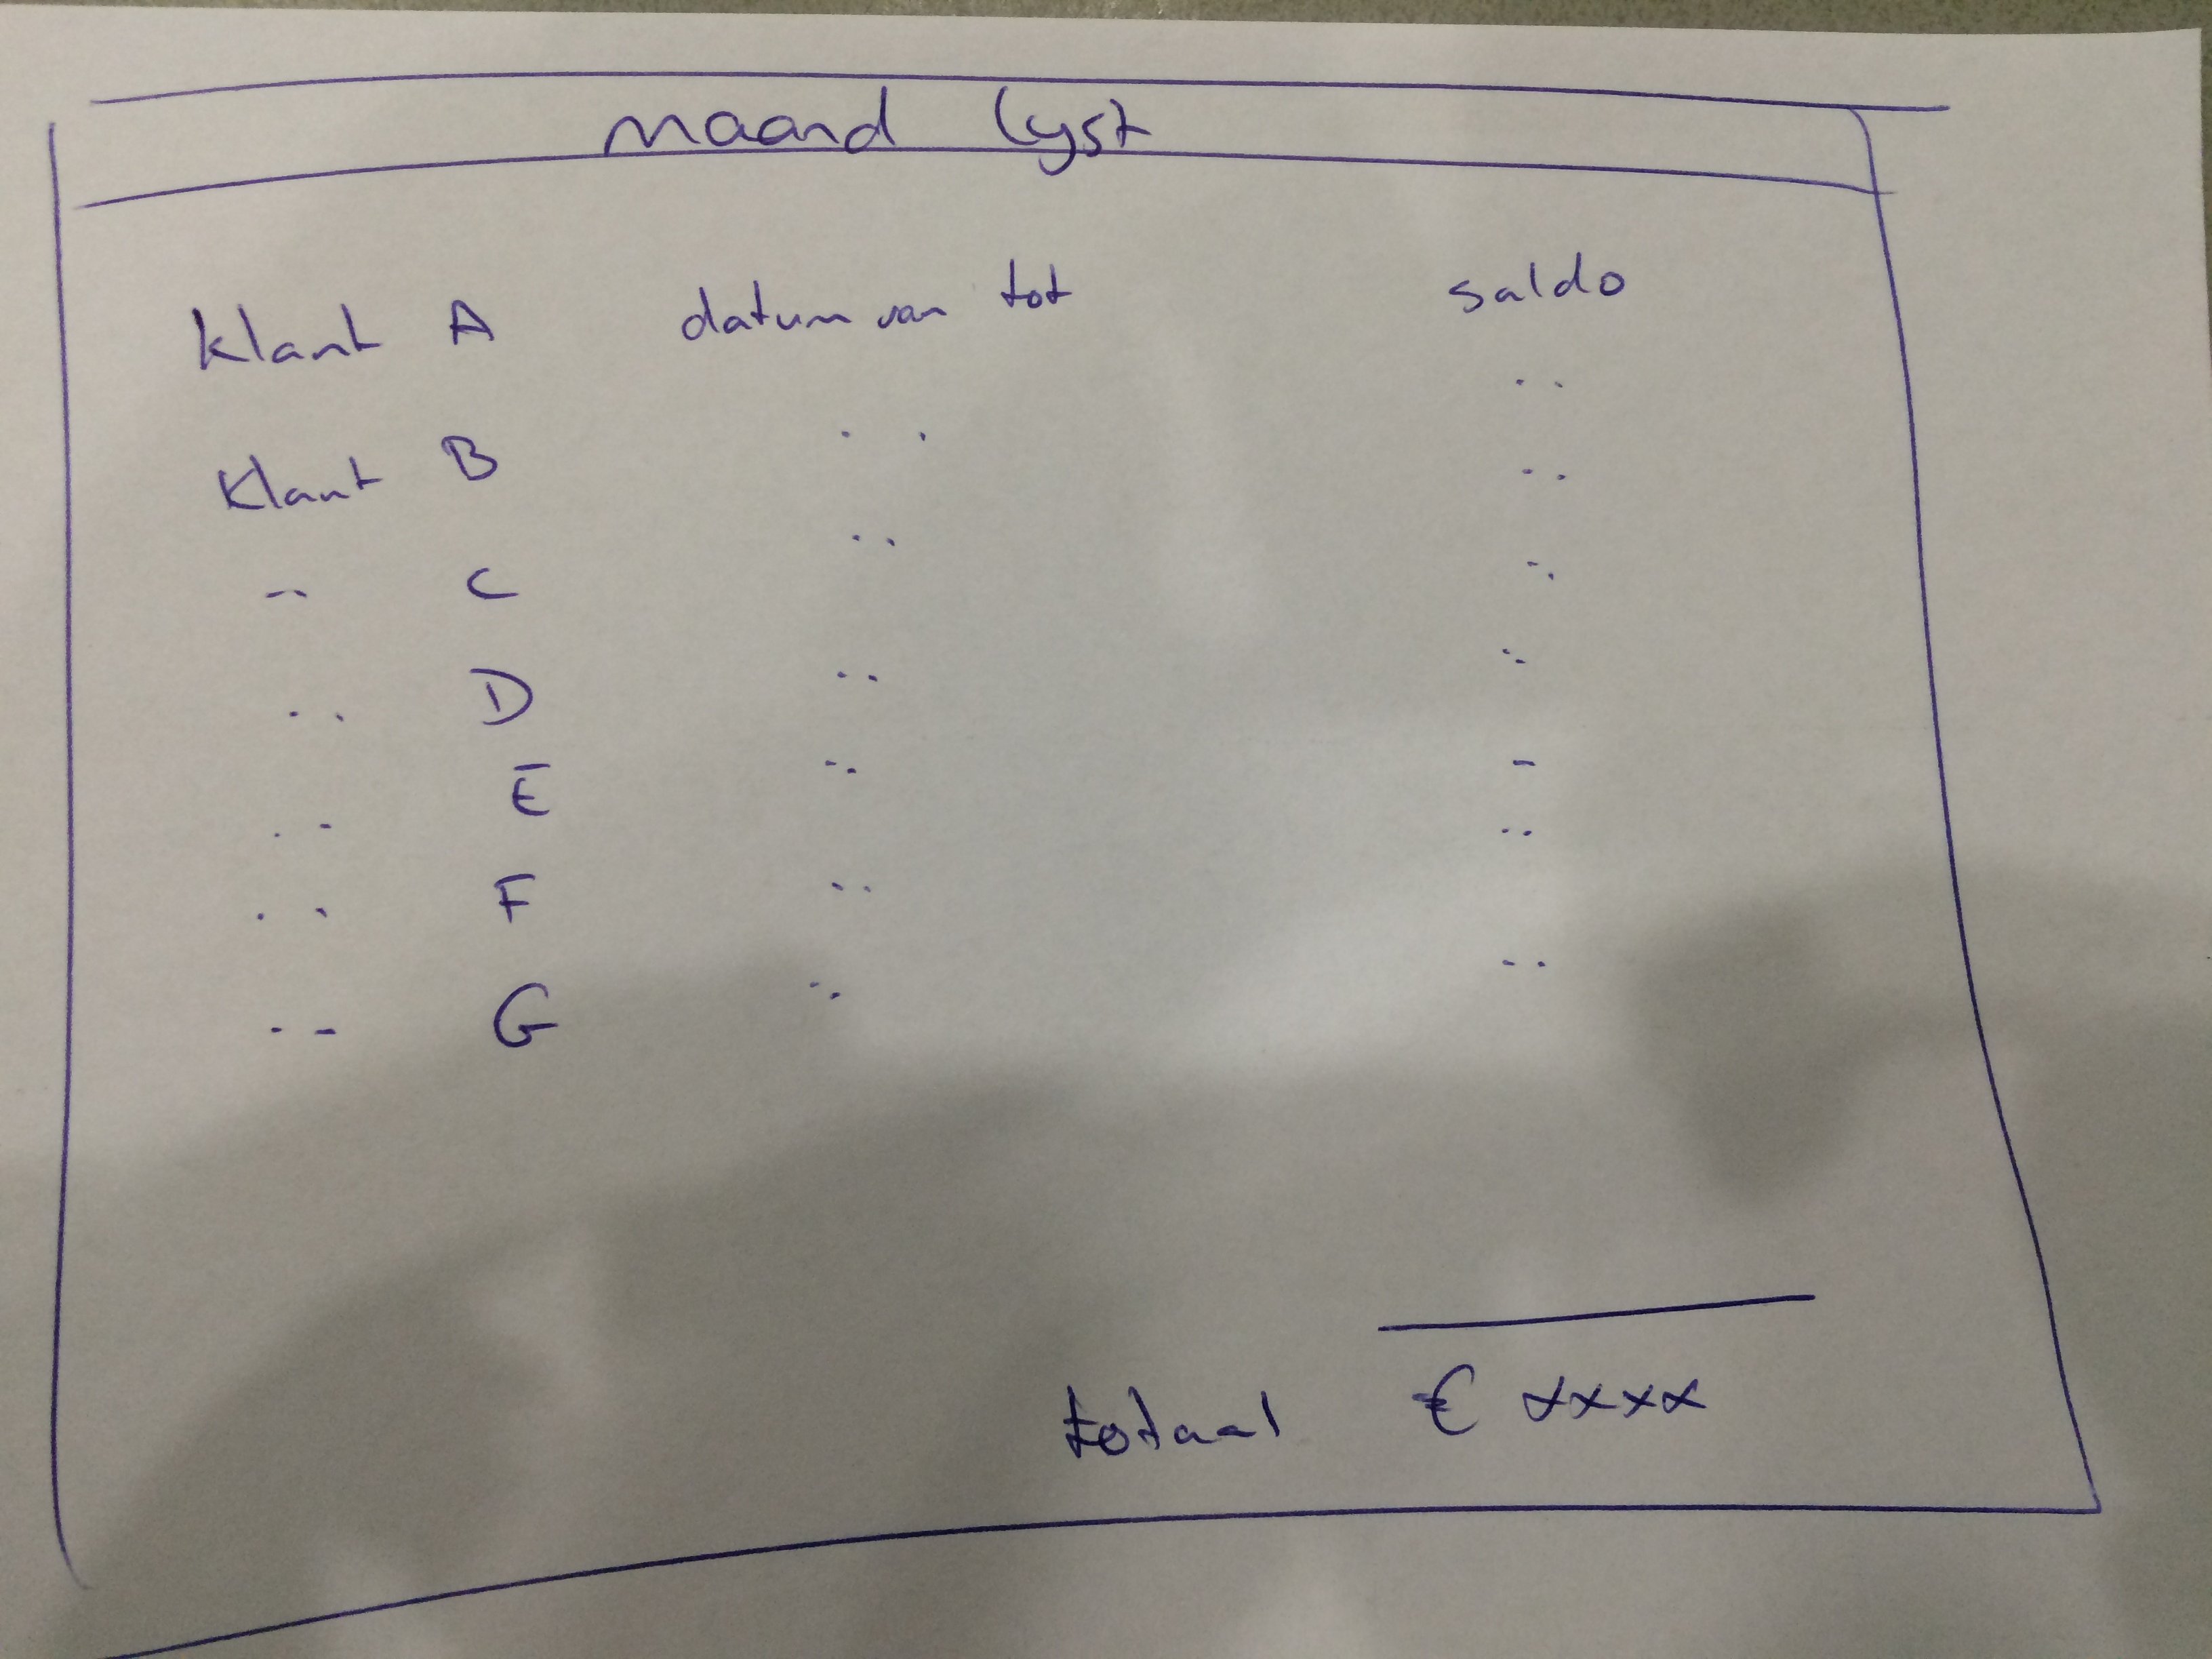 maand lyst
klant A datum van tot saldo
klant B
C
D
E
F
G
totaal € xxxx